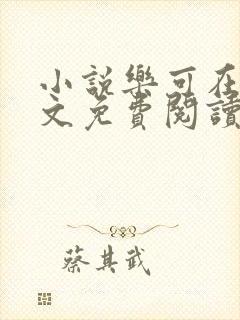 小說樂可在
文免費閱讀
蔡其武